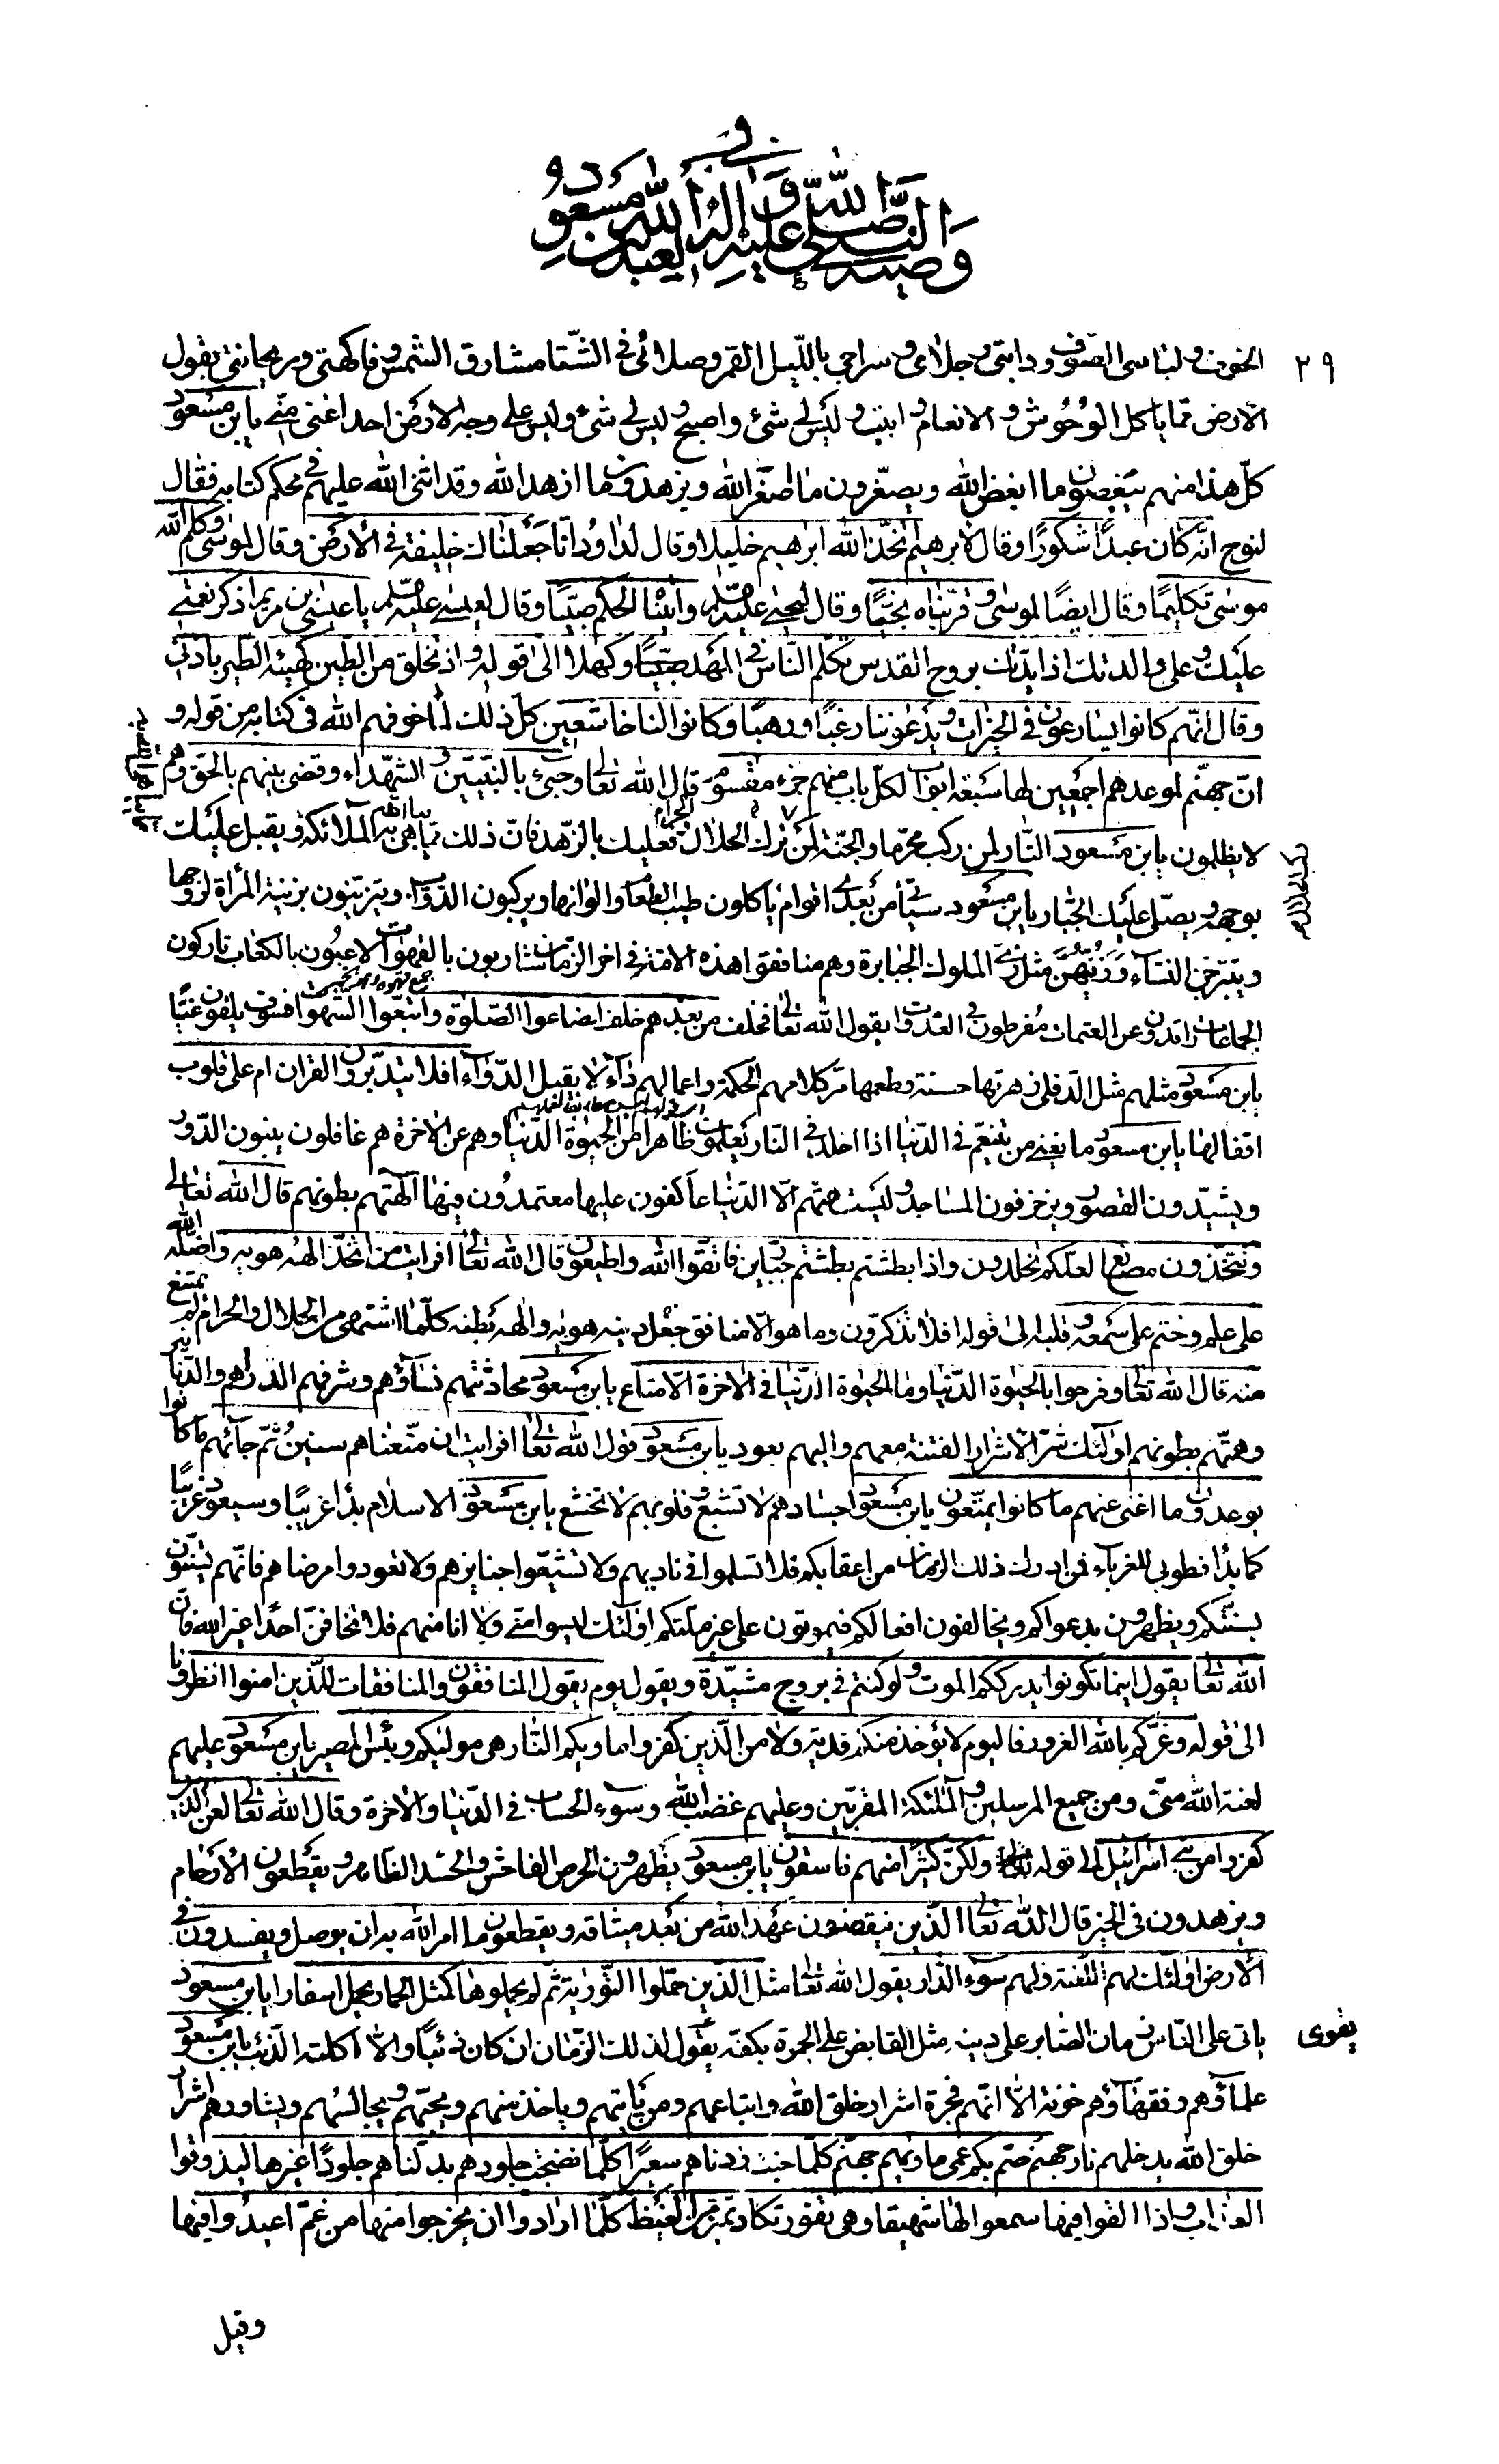 في
وصية النبي صلى الله عليه و اله لعبد الله بن مسعود
٢٩
الخوف و لباسى الصوف و دابتى رجلاى و سراجى بالليل القمر و صلائى في الشتا مشارق الشمس و فاكهتى و ريحانتى بقول
الارض مما ياكل الوحوش و الانعام و ابيت و ليس لي شئ و اصبح و ليس لي شئ و ليس على وجه الارض احد اغنى منّي يا بن مسعود
كلّ هذا منهم يبغضون ما ابغض الله و يصغّرون ما صغّر الله و يزهدون ما ازهد الله و قد اثنى الله عليهم في محكم كتابه فقال
لنوح انّه كان عبدًا شكورًا و قال لابرهيم اتخذ الله ابرهيم خليلا و قال لداود انّا جعلناك خليفة في الارض و قال لموسى و كلم الله
موسى تكليمًا و قال ايضًا لموسى و قربناه نجيًّا و قال ليحيى عليه و اتيناه الحكم صبيًّا و قال لعيسى عليه يا عيسى بن مريم اذكر نعمتي
عليك و على والدتك اذ ايّدتك بروح القدس تكلّم النّاس في المهد صبيًّا و كهلا الى قوله و اذ تخلق من الطين كهيئة الطير باذني
و قال انّهم كانوا يسارعون في الخيرات و يدعوننا رغبًا و رهبًا و كانوا لنا خاشعين كلّ ذلك لما خوفهم الله في كتابه من قوله و
انّ جهنّم لموعدهم اجمعين لها سبعة ابواب لكلّ باب منهم جزء مقسوم قال الله تعالى و جئ بالنّبيّين و الشهداء و قضى بينهم بالحق و هم
لا يظلمون يا بن مسعود النّار لمن ركب محرّما و الجنّة لمن ترك الحلال فعليك بالزهد فانّ ذلك ممّا يباهى الله به الملائكة و يقبل عليك
الحرام
بوجهه و يصلّى عليك الجبّار يا بن مسعود سيأتي من بعدى اقوام ياكلون طيب الطعام و الوانها و يركبون الدّوابّ و يتزيّنون بزينة المرأة لزوجها
و يتبرّجن النساء و زيّهنّ مثل زيّ الملوك الجبابرة و هم منافقوا هذه الامّة في اخر الزّمان شاربون بالقهوات لاعبون بالكعاب تاركون
الجماعات راقدون عن العتمات مفرطون في الغدوات يقول الله تعالى فخلف من بعدهم خلف اضاعوا الصّلوة و اتّبعوا الشّهوات فسوف يلقون غيًّا
يا بن مسعود مثلهم مثل الدّفلى زهرتها حسنة و طعمها مرّ كلامهم الحكمة و اعمالهم داء لا يقبل الدّواء افلا يتدبّرون القران ام على قلوب
اقفالها يا بن مسعود ما يغني من يتنعّم في الدّنيا اذا اخلد في النار يعلمون ظاهرا من الحيوة الدّنيا و هم عن الاخرة هم غافلون يبنون الدّور
و يشيّدون القصور و يزخرفون المساجد و ليست همّتهم الّا الدّنيا عاكفون عليها معتمدون فيها الهتهم بطونهم قال الله تعالى
و تتّخذون مصانع لعلكم تخلدون و اذا بطشتم بطشتم جبّارين فاتّقوا الله و اطيعون قال الله تعالى افرايت من اتّخذ الهه هويه و اضلّه الله
على علم و ختم على سمعه و قلبه الى قوله افلا تذكّرون و ما هو الّا منافق جعل دينه هويه و الهه بطنه كلّما اشتهى من الحلال و الحرام لم يمتنع
منه قال الله تعالى و فرحوا بالحيوة الدّنيا و ما الحيوة الدّنيا في الاخرة الّا متاع يا بن مسعود محادثتهم نساؤهم و شرفهم الدراهم و الدّنانير
و همّتهم بطونهم اولئك شرّ الاشرار الفتنة معهم و اليهم يعود يا بن مسعود قول الله تعالى افرايت ان متّعناهم سنين ثمّ جائهم ما كانوا
يوعدون ما اغنى عنهم ما كانوا يمتّعون يا بن مسعود اجسادهم لا تشبع و قلوبهم لا تخشع يا بن مسعود الاسلام بدأ غريبًا و سيعود غريبًا
كما بدأ فطوبى للغرباء فمن ادرك ذلك الزمان من اعقابكم فلا تسلموا في ناديهم و لا تشيّعوا جنايزهم و لا تعودوا مرضاهم فانّهم يستنّون
بسنّتكم و يظهرون بدعواكم و يخالفون افعالكم فيموتون على غير ملّتكم اولئك ليسوا منّي و لا انا منهم فلا تخافنّ احدًا غير الله فانّ
الله تعالى يقول اينما تكونوا يدرككم الموت و لو كنتم في بروج مشيّدة و يقول يوم يقول المنافقون و المنافقات للّذين امنوا انظرونا
الى قوله و غرّكم بالله الغرور فاليوم لا يؤخذ منكم فدية و لا من الّذين كفروا ماويكم النّار هى موليكم و بئس المصير يا بن مسعود عليهم
لعنة الله منّى و من جميع المرسلين و الملئكة المقربين و عليهم غضب الله و سوء الحساب في الدّنيا و الاخرة و قال الله تعالى لعن الّذين
كفروا من بني اسرائيل الى قوله و لكنّ كثيرًا منهم فاسقون يا بن مسعود يظهرون الحرص الفاحش و الحسد الظاهر و يقطعون الارحام
و يزهدون في الخير قال الله تعالى الّذين ينقضون عهد الله من بعد ميثاقه و يقطعون ما امر الله به ان يوصل و يفسدون في
الارض اولئك لهم اللعنة و لهم سوء الدّار يقول الله تعالى مثل الّذين حمّلوا التّوراية ثمّ لم يحملوها كمثل الحمار يحمل اسفارا يا بن مسعود
ياتى على النّاس زمان الصّابر على دينه مثل القابض على الجمرة بكفّه يقول لذلك الزّمان ان كان ذئبًا و الّا اكلته الذّئب يا بن مسعود
علماؤهم و فقهاؤهم خونة الّا انّهم فجرة اشرار خلق الله و اتباعهم و من ياتيهم و ياخذ منهم و يحبّهم و يجالسهم و يشاورهم اشرار
خلق الله يدخلهم نار جهنم صمّ بكم عمى ماويهم جهنّم كلّما خبت زدناهم سعيرًا كلّما نضجت جلودهم بدّلناهم جلودًا غيرها ليذوقوا
العذاب و اذا القوا فيها سمعوا لها شهيقا و هى تفور تكاد تميّز من الغيظ كلّما ارادوا ان يخرجوا منها من غمّ اعيدوا فيها
و قيل